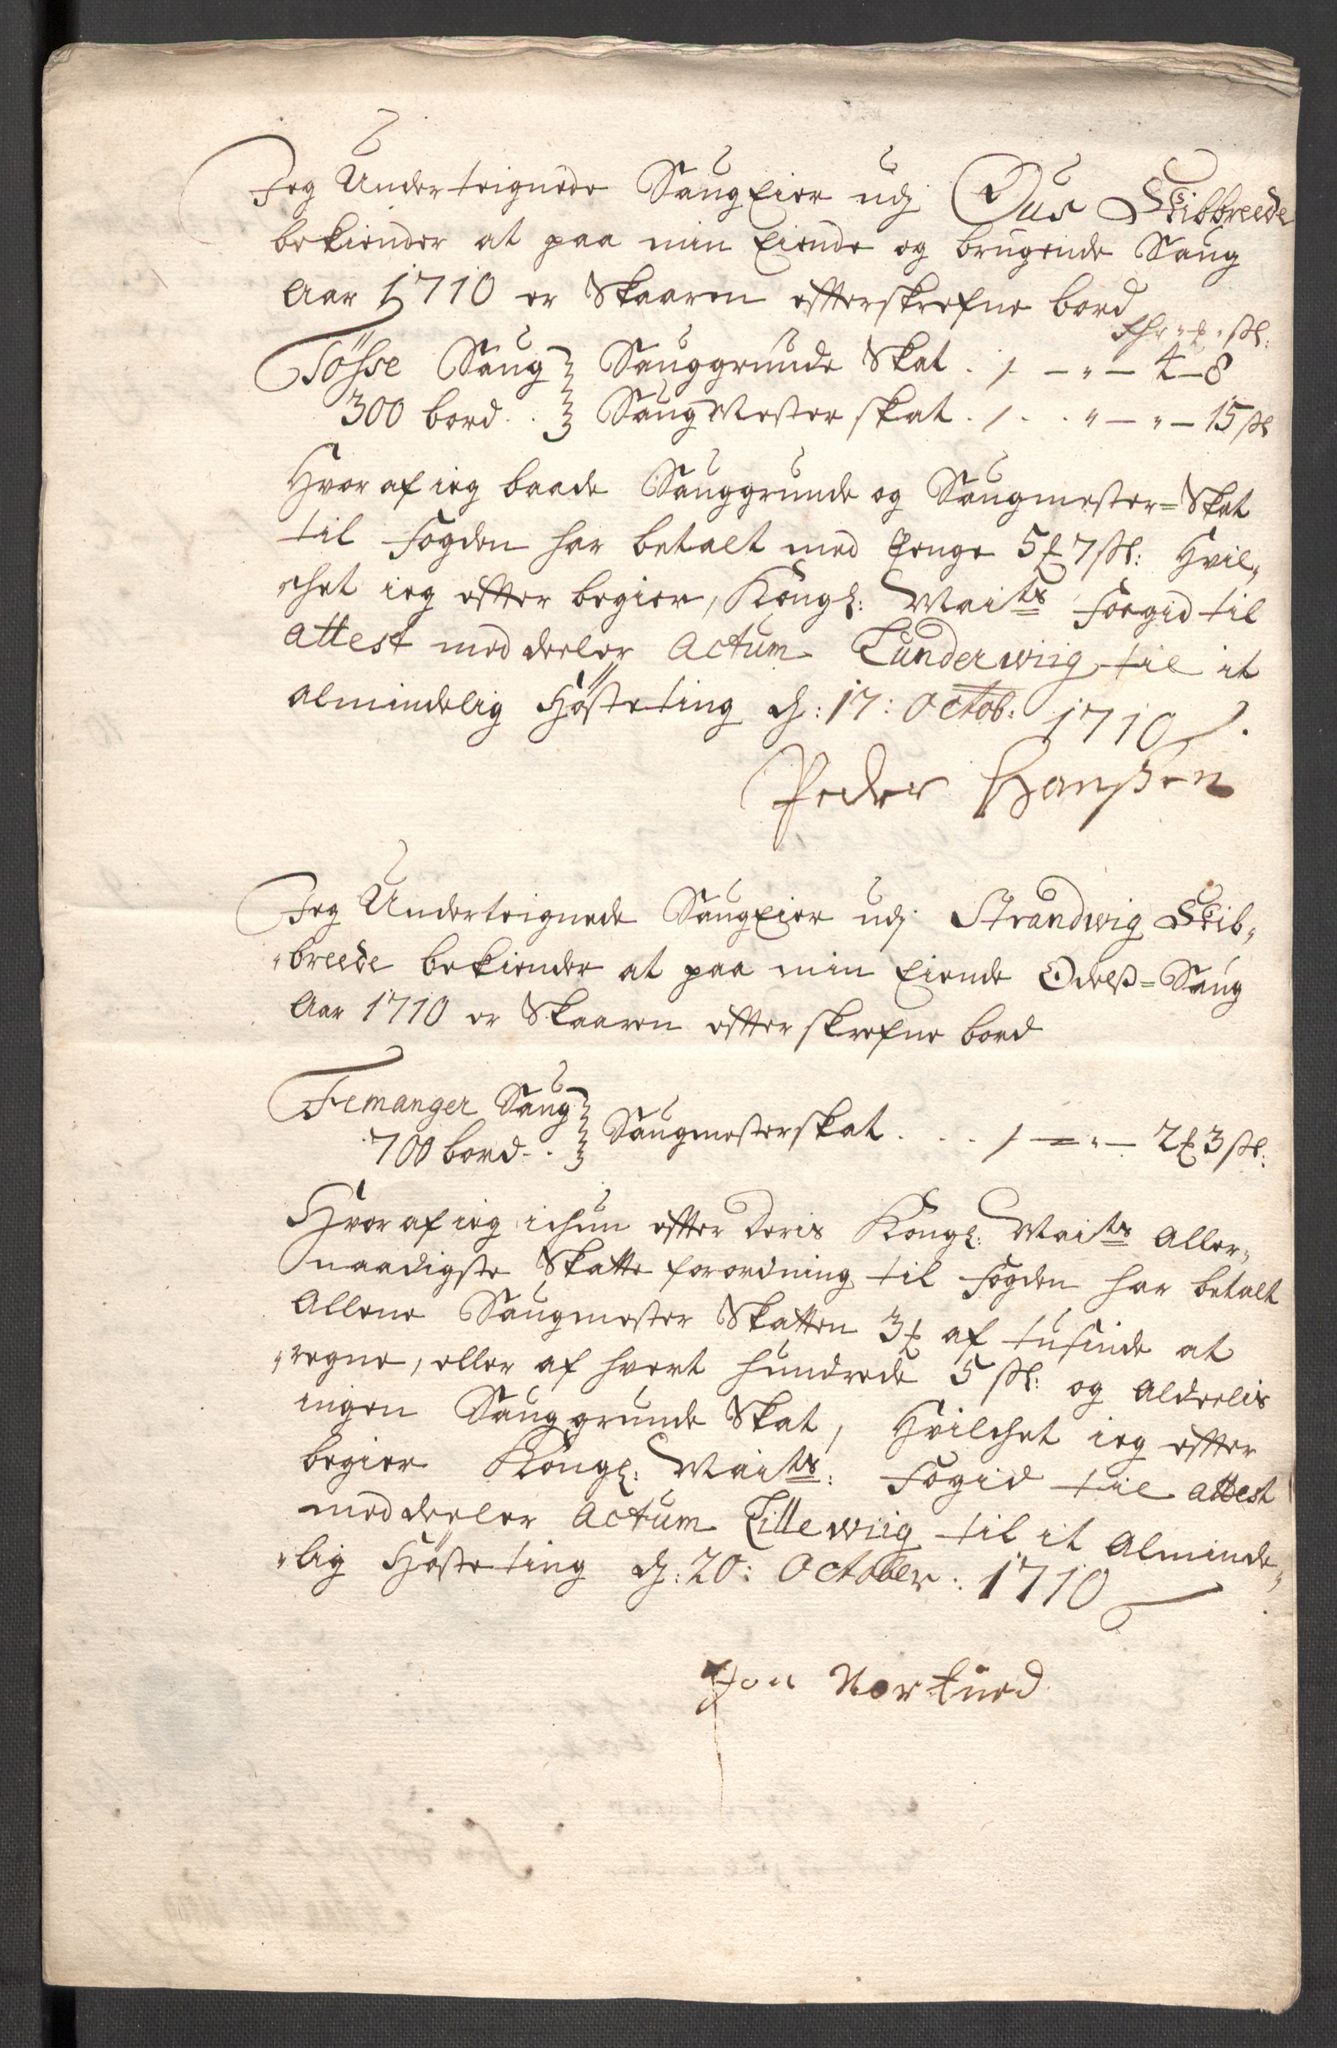 Jeg Underteignede SaugEier udj Ous Skibbreede
bekiender at paa min Eiende og brugende Saug
Aar 1710 er Skaaren efterskrefne bord
Tösse Saug } Sauggrunde Skat . / — " — 4 — 8
300 bord . . } SaugMester skat . / . . " — " — 15 sk
Hvor af ieg baade Sauggrunde og Saugmester=Skat
til Fogden har betalt med Penge 5 7 sk: Hvil„
„chet ieg efter begier, Kongl: Maits Foegid til
Attest meddeeler Actum Lunderwiig til it
Almindelig Hösteting d: 17: Octob: 1710
Peder Hanßen
Jeg Underteignede SaugEier udj Strandwig Skib„
„breede bekiender at paa min Eiende Odelß=Saug
Aar 1710 er Skaaren efterskrefne bord
Femanger Saug } Saugmesterskat . . . / — " — 2 3 sk:
700 bord . . }
Hvor af ieg ichun efter Deris Kongl: Maits Aller„
naadigste Skatte forordning til Fogden har betalt
Allene Saugmester Skatten 3 af tusinde at
„regne, eller af hvert hundrede 5 sk: og Aldeelis
ingen Sauggrunde Skat, Hvilchet ieg efter
begier Kongl: Maits: Fogid til Attest
meddeeler Actum Lillewiig til it Alminde„
„lig Hösteting d: 20: October: 1710
Jon Nortued